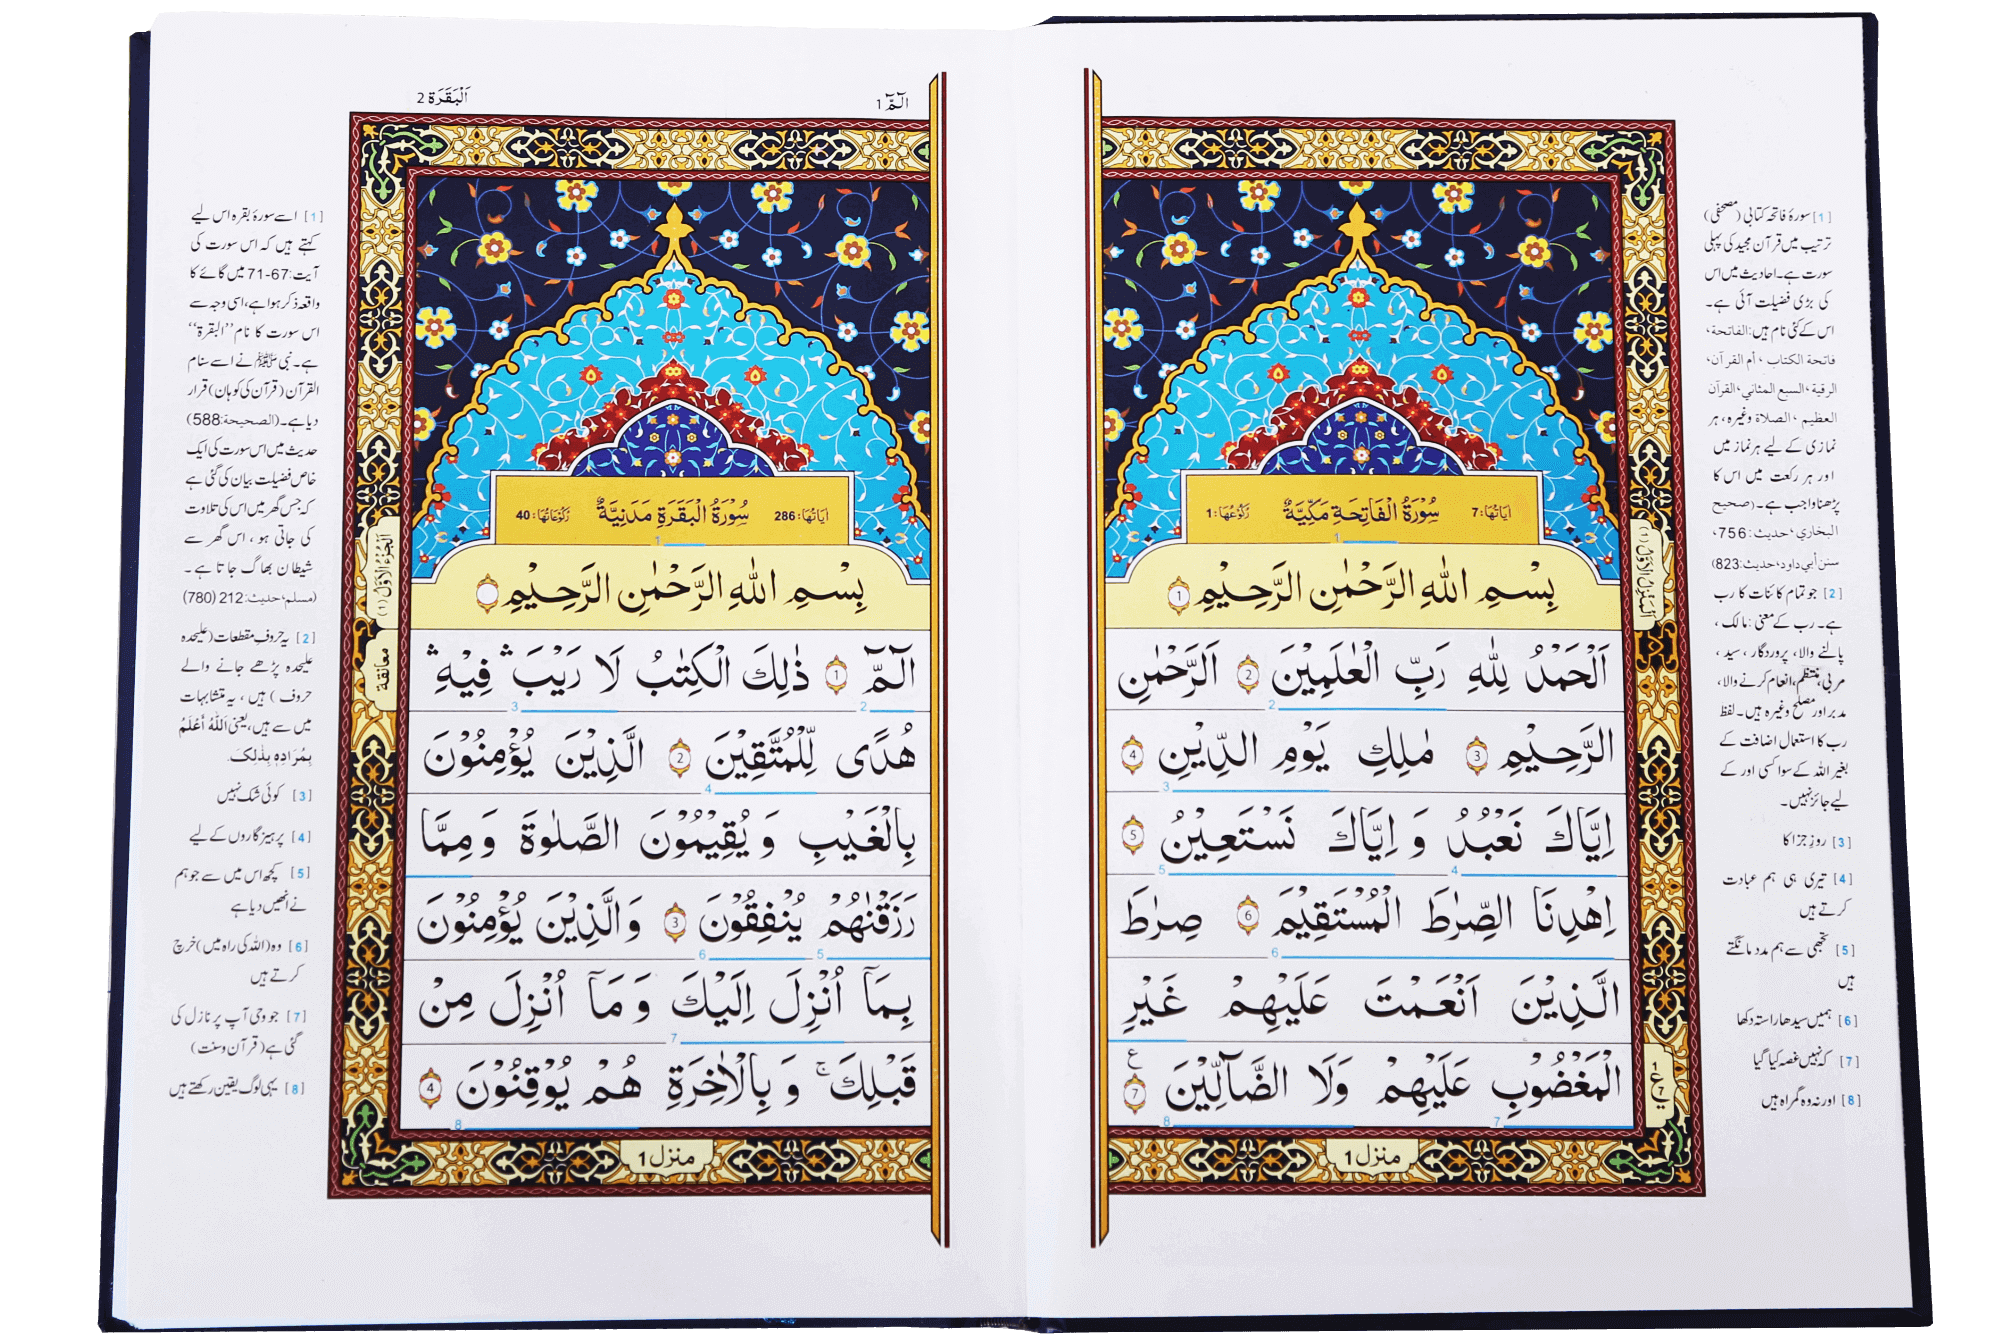 سُوْرَةُ الْفَاتِحَةِ مَكِّيَّةٌ
اٰيَاتُهَا: 7
رُكُوْعُهَا: 1
1
بِسْمِ اللّٰهِ الرَّحْمٰنِ الرَّحِيْمِ 1
اَلْحَمْدُ لِلّٰهِ رَبِّ الْعٰلَمِيْنَ 2 الرَّحْمٰنِ
الرَّحِيْمِ 3 مٰلِكِ يَوْمِ الدِّيْنِ 4
اِيَّاكَ نَعْبُدُ وَ اِيَّاكَ نَسْتَعِيْنُ 5
اِهْدِنَا الصِّرٰطَ الْمُسْتَقِيْمَ 6 صِرٰطَ
الَّذِيْنَ اَنْعَمْتَ عَلَيْهِمْ غَيْرِ
الْمَغْضُوْبِ عَلَيْهِمْ وَلَا الضَّآلِّيْنَ 7
منزل 1
اَلْمَنْزِلُ الْاَوَّلُ (1)
[1] سورۂ فاتحہ کتابی (مصحفی)
ترتیب میں قرآن مجید کی پہلی
سورت ہے۔ احادیث میں اس
کی بڑی فضیلت آئی ہے۔
اس کے کئی نام ہیں: الفاتحة،
فاتحة الكتاب ، أم القرآن،
الرقية، السبع المثاني، القرآن
العظيم ، الصلاة وغیرہ، ہر
نمازی کے لیے ہر نماز میں
اور ہر رکعت میں اس کا
پڑھنا واجب ہے۔ (صحيح
البخاري، حدیث: 756،
سنن أبي داود، حدیث: 823)
[2] جو تمام کائنات کا رب
ہے۔ رب کے معنی: مالک ،
پالنے والا، پروردگار ، سید ،
مربی، منتظم، انعام کرنے والا،
مدبر اور مصلح وغیرہ ہیں۔ لفظ
رب کا استعمال اضافت کے
بغیر اللہ کے سوا کسی اور کے
لیے جائز نہیں۔
[3] روز جزا کا
[4] تیری ہی ہم عبادت
کرتے ہیں
[5] تجھی سے ہم مدد مانگتے
ہیں
[6] ہمیں سیدھا راستہ دکھا
[7] کہ نہیں غصہ کیا گیا
[8] اور نہ وہ گمراہ ہیں
الٓمّٓ 1
اَلْبَقَرَة 2
سُوْرَةُ الْبَقَرَةِ مَدَنِيَّةٌ
اٰيَاتُهَا: 286
رُكُوْعَاتُهَا: 40
1
بِسْمِ اللّٰهِ الرَّحْمٰنِ الرَّحِيْمِ
الٓمّٓ 1 ذٰلِكَ الْكِتٰبُ لَا رَيْبَ ۛ فِيْهِ ۛ
هُدًى لِّلْمُتَّقِيْنَ 2 الَّذِيْنَ يُؤْمِنُوْنَ
بِالْغَيْبِ وَ يُقِيْمُوْنَ الصَّلٰوةَ وَ مِمَّا
رَزَقْنٰهُمْ يُنْفِقُوْنَ 3 وَالَّذِيْنَ يُؤْمِنُوْنَ
بِمَآ اُنْزِلَ اِلَيْكَ وَ مَآ اُنْزِلَ مِنْ
قَبْلِكَ ۚ وَ بِالْاٰخِرَةِ هُمْ يُوْقِنُوْنَ 4
منزل 1
اَلْجُزْءُ الْاَوَّلُ (1)
معانقة
[1] اسے سورۂ بقرہ اس لیے
کہتے ہیں کہ اس سورت کی
آیت: 67-71 میں گائے کا
واقعہ ذکر ہوا ہے، اسی وجہ سے
اس سورت کا نام ’’البقرة‘‘
ہے۔ نبی ﷺ نے اسے سنام
القرآن (قرآن کی کوہان) قرار
دیا ہے۔ (الصحيحة: 588)
حدیث میں اس سورت کی ایک
خاص فضیلت بیان کی گئی ہے
کہ جس گھر میں اس کی تلاوت
کی جاتی ہو ، اس گھر سے
شیطان بھاگ جاتا ہے ۔
(مسلم، حدیث: 212 (780)
[2] یہ حروف مقطعات (علیحدہ
علیحدہ پڑھے جانے والے
حروف ) ہیں ، یہ متشابہات
میں سے ہیں، یعنی اَللّٰهُ أَعْلَمُ
بِمُرَادِهِ بِذٰلِكَ.
[3] کوئی شک نہیں
[4] پرہیزگاروں کے لیے
[5] کچھ اس میں سے جو ہم
نے انھیں دیا ہے
[6] وہ (اللہ کی راہ میں) خرچ
کرتے ہیں
[7] جو وحی آپ پر نازل کی
گئی ہے (قرآن و سنت)
[8] یہی لوگ یقین رکھتے ہیں